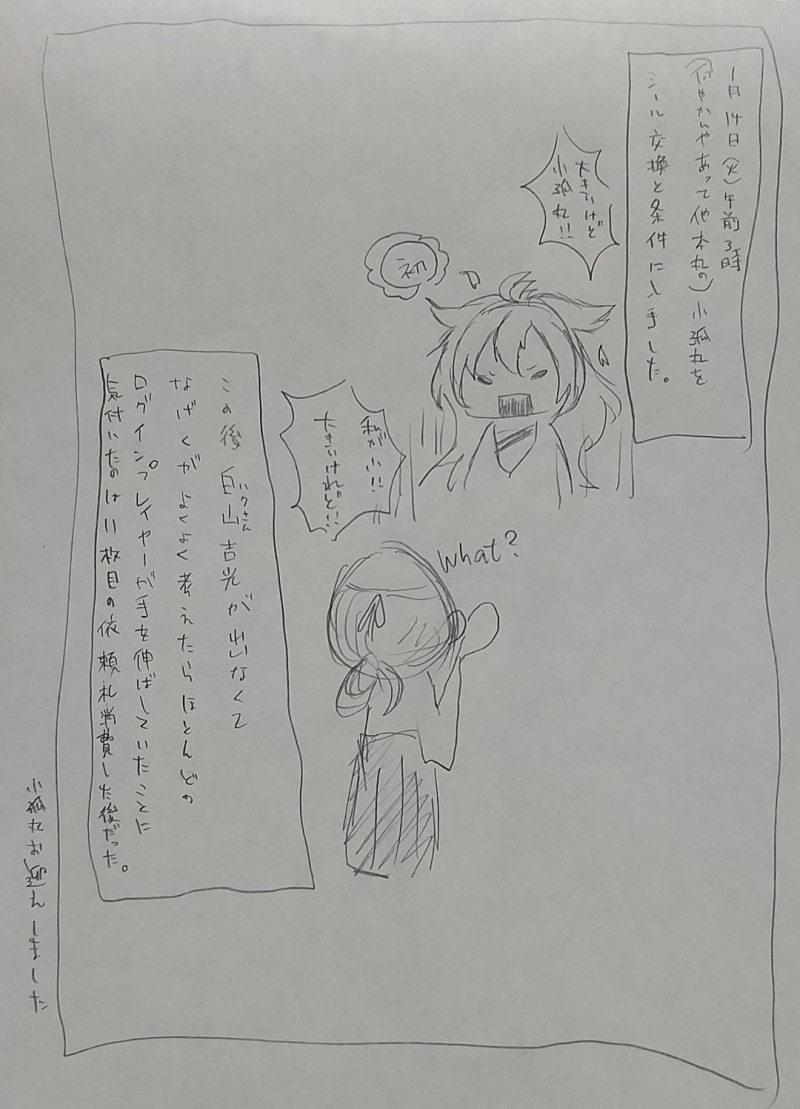 1月14日(火)午前3時
(何やかんやあって他本丸の)小狐丸を
シール交換と条件に入手した。
大きいけど
小狐丸!!
初
私が小!!
大きいけれど!!
What?
この後白山吉光が出なくて
ハクさん
なげくがよくよく考えたらほとんどの
ログインプレイヤーが手を伸ばしていたことに
気付いたのは11枚目の依頼札消費した後だった。
小狐丸お迎えしました